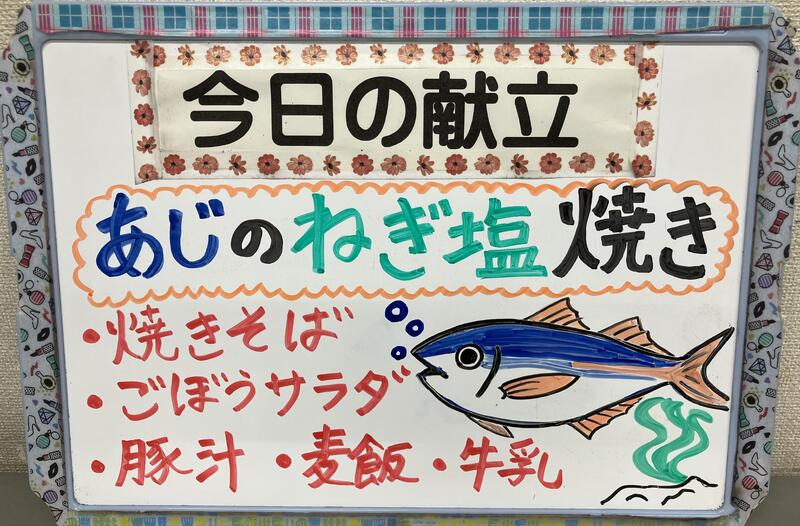 今日の献立
あじのねぎ塩焼き
・焼きそば
・ごぼうサラダ
・豚汁 ・麦飯 ・牛乳